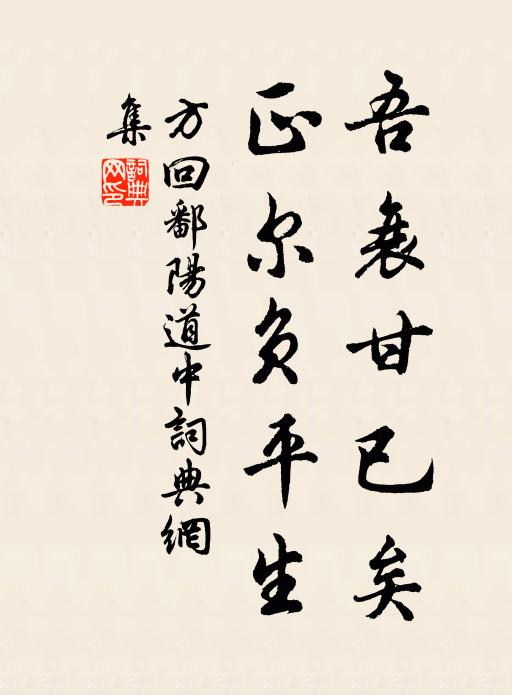 吾衰甘已矣
正尔负平生
方回鄱陽道中詞典網
集
詞典網印